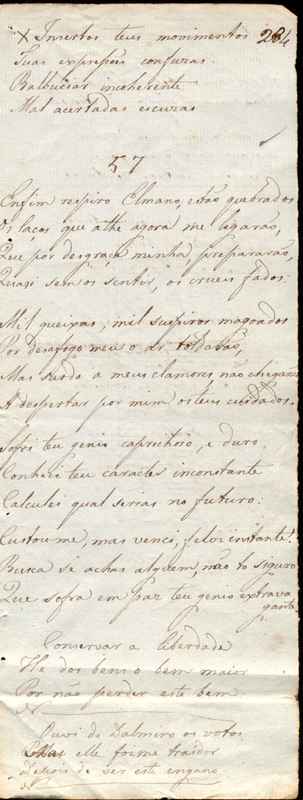 x Insertos teus movimentos 284
Suas expresoes confuzas
Balbuciar incoherente
Mal acertadas escuzas
57
Enfim respiro Elmano, estão quebrados
Os laços que athe agora me ligarão,
Que por desgraça minha prepararão,
Quazi sem os sentir, os crueis fados.
Mil queixas, mil suspiros magoados
Por desafogo meu o ar
Mas surdo a meus clamores não chegarão
A despertar por mim os teus cuidados.
Sofri teu genio caprichozo, e duro
Conheci teu caracter inconstante
Calculei qual serias no futuro:
Custou me, mas venci, feliz instante!
Busca se achas alguem, não to seguro
Que sofra em paz teu genio extrava
gante
Conservar a liberdade
He dos bens o bem maior
Por não perder este bem
Ouvi de Dalmiro os votos
Mas elle foi me traidor
Depois de ver este engano